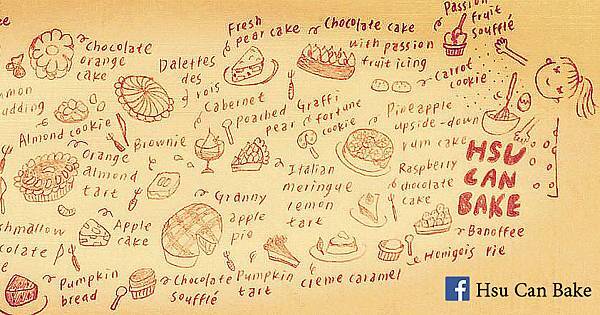 Chocolate
orange
cake
Dalettes
des
rois
Fresh
pear cake
Chocolate cake
with passion
fruit icing
Passion
fruit
soufflé
Carrot
cookie
Almond cookie
Brownie
Cabernet
poached
pear
Graffi
fortune
cookie
Pineapple
upside-down
rum cake
Orange
almond
tart
Italian
meringue
lemon
tart
Raspberry
chocolate
cake
HSU
CAN
BAKE
Apple
cake
Granny
apple
pie
Banoffee
Pie
Pumpkin
bread
Chocolate
soufflé
Pumpkin
tart
crème caramel
Hsu Can Bake